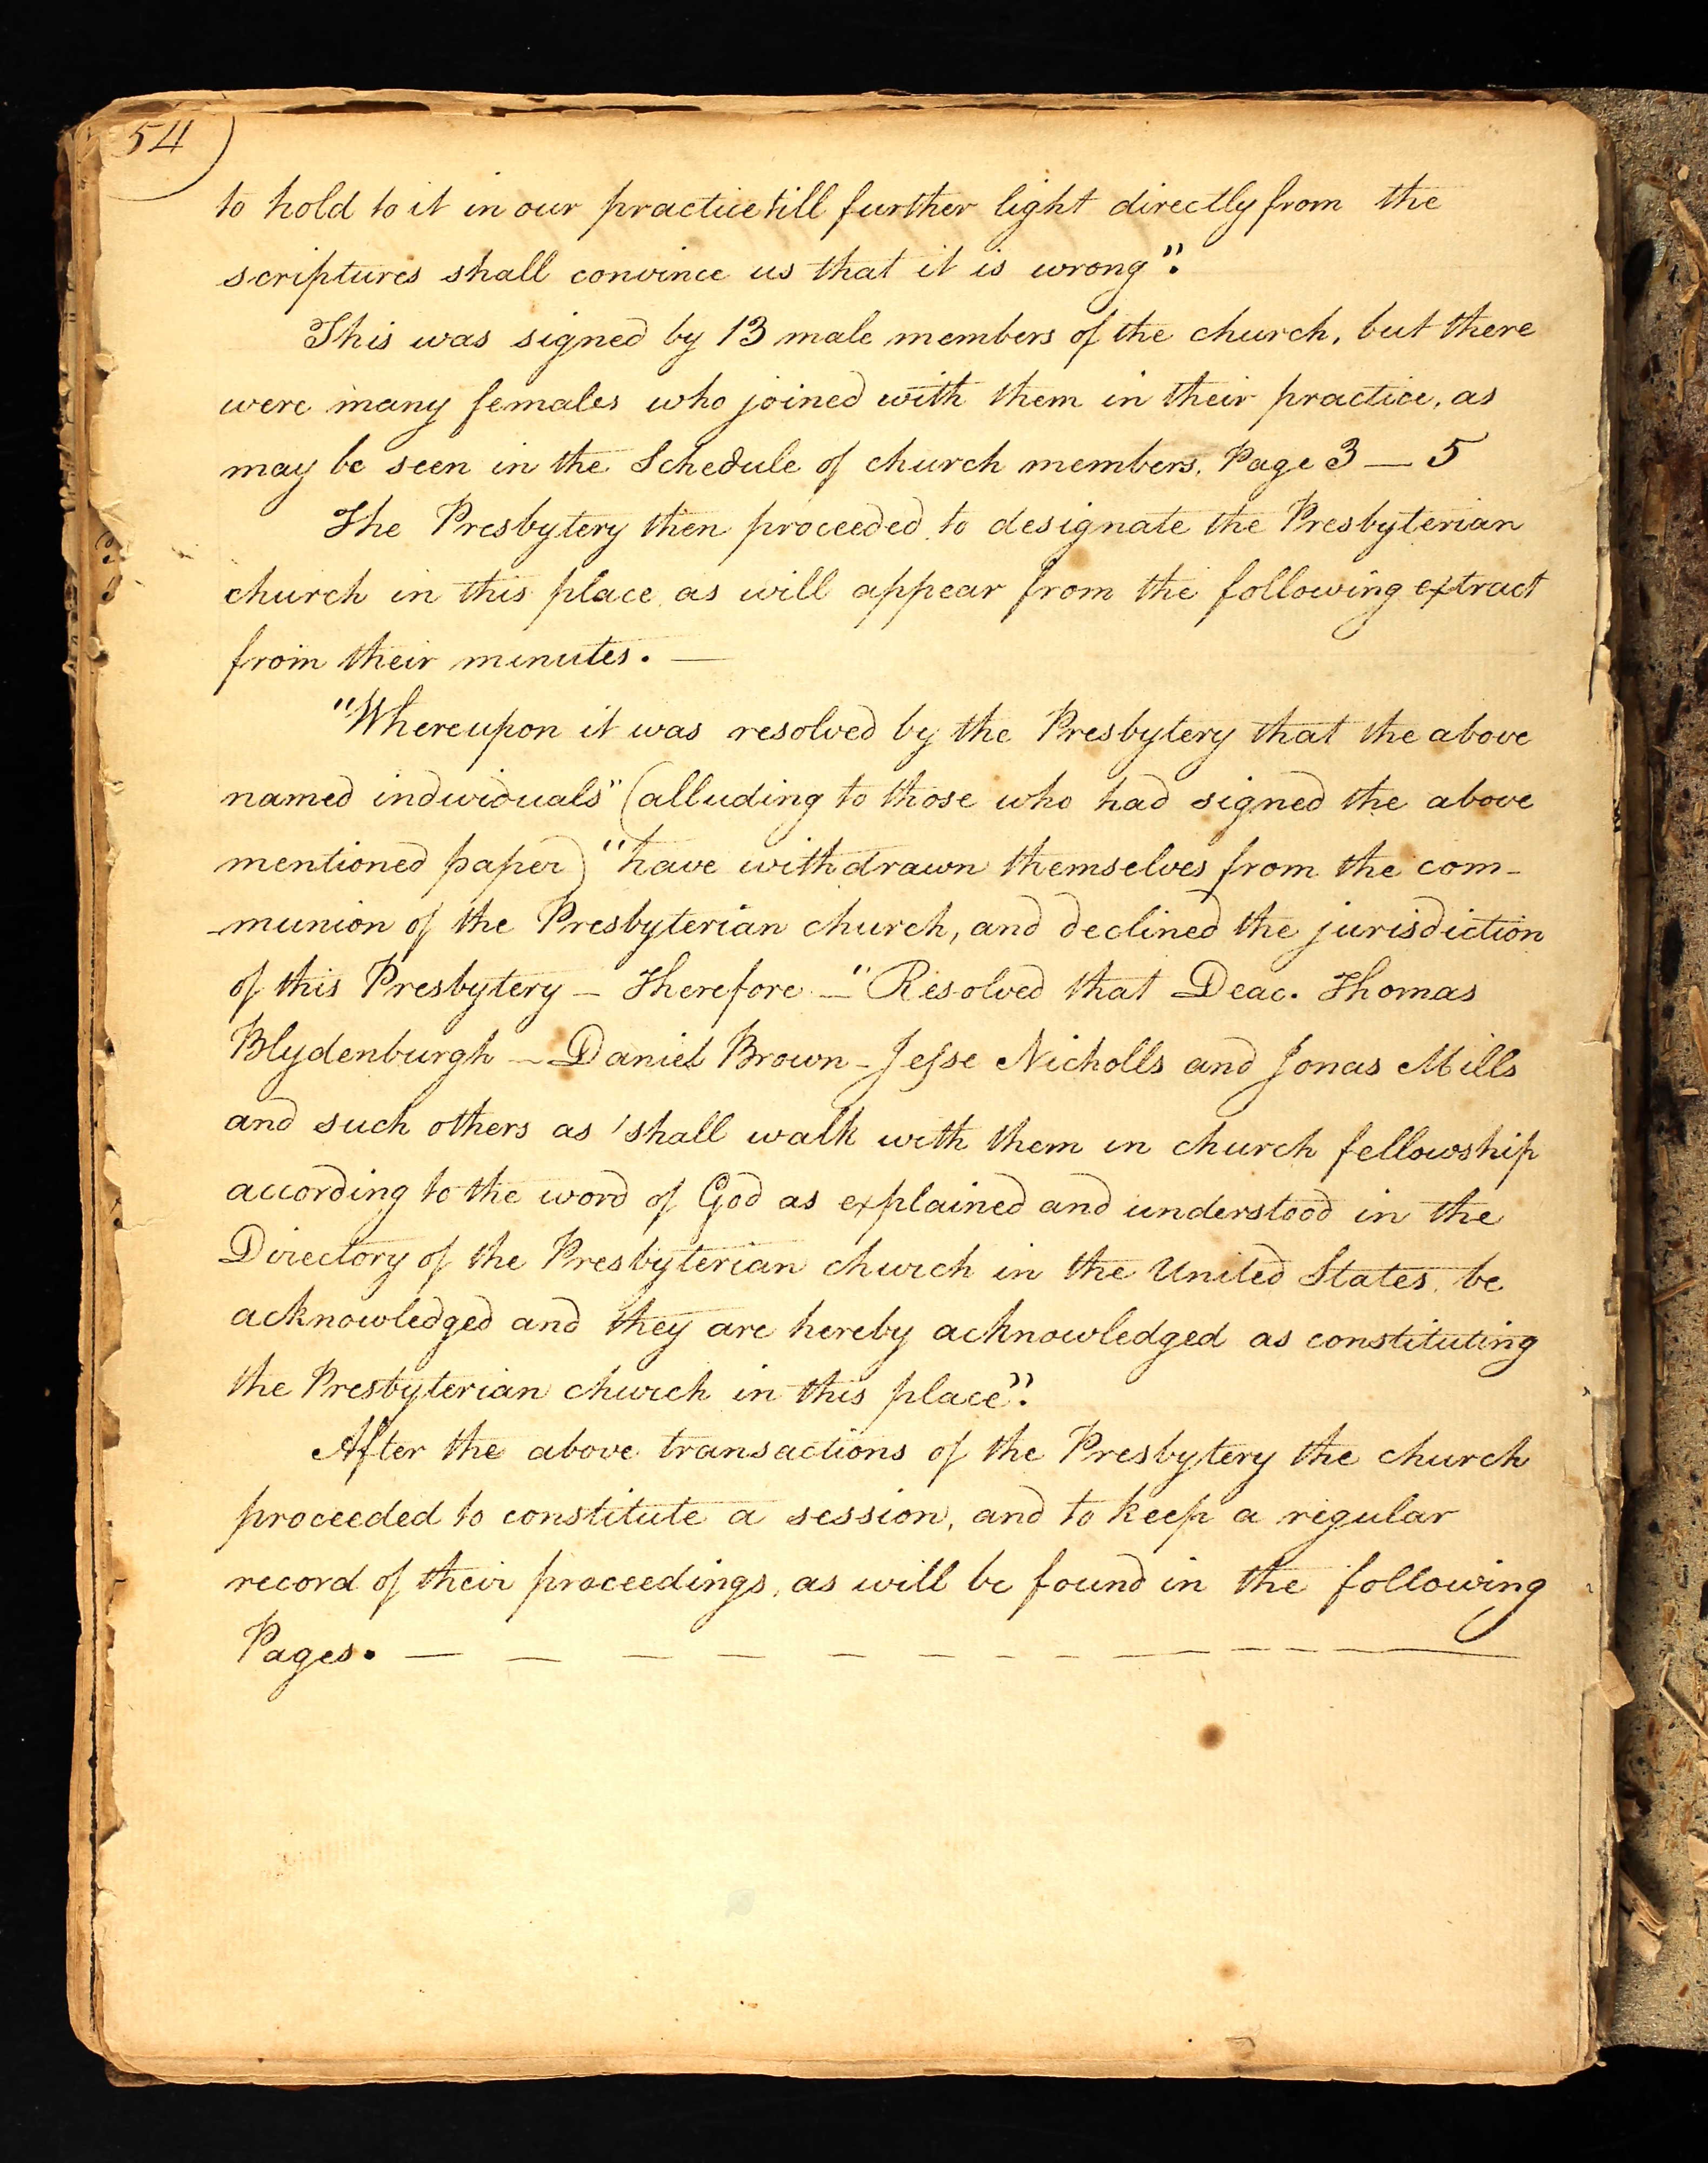 54
to hold to it in our practice till further light directly from the
scriptures shall convince us that it is wrong".
This was signed by 13 male members of the church, but there
were many females who joined with them in their practice, as
may be seen in the Schedule of church members, Page 3 — 5
The Presbytery then proceeded to designate the Presbyterian
church in this place as will appear from the following extract
from their minutes. —
"Whereupon it was resolved by the Presbytery that the above
named individuals" (alluding to those who had signed the above
mentioned paper) "have withdrawn themselves from the com-
-munion of the Presbyterian church, and declined the jurisdiction
of this Presbytery — Therefore — "Resolved that Deac. Thomas
Blydenburgh — Daniel Brown - Jesse Nicholls and Jonas Mills
and such others as shall walk with them in church fellowship
according to the word of God as explained and understood in the
Directory of the Presbyterian church in the United States, be
acknowledged and they are hereby acknowledged as constituting
the Presbyterian church in this place".
After the above transactions of the Presbytery the church
proceeded to constitute a session, and to keep a regular
record of their proceedings, as will be found in the following
Pages. — — — — — — — — — — — —